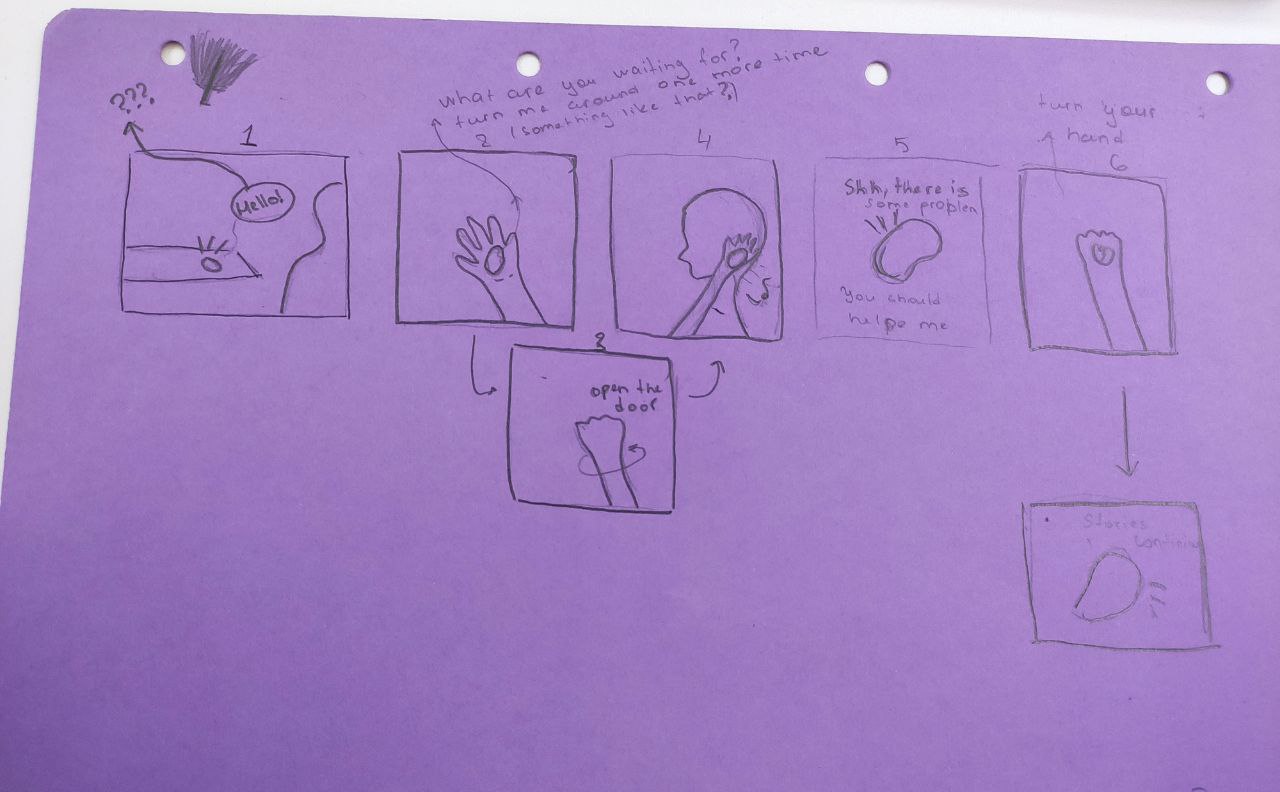 ???
1
Hello!
What are you waiting for?
turn me around one more time
(something like that?)
2
3
open the
door
4
5
Shh, there is
some problem
You should
helpe me
turn your
hand
6
Stories
continue